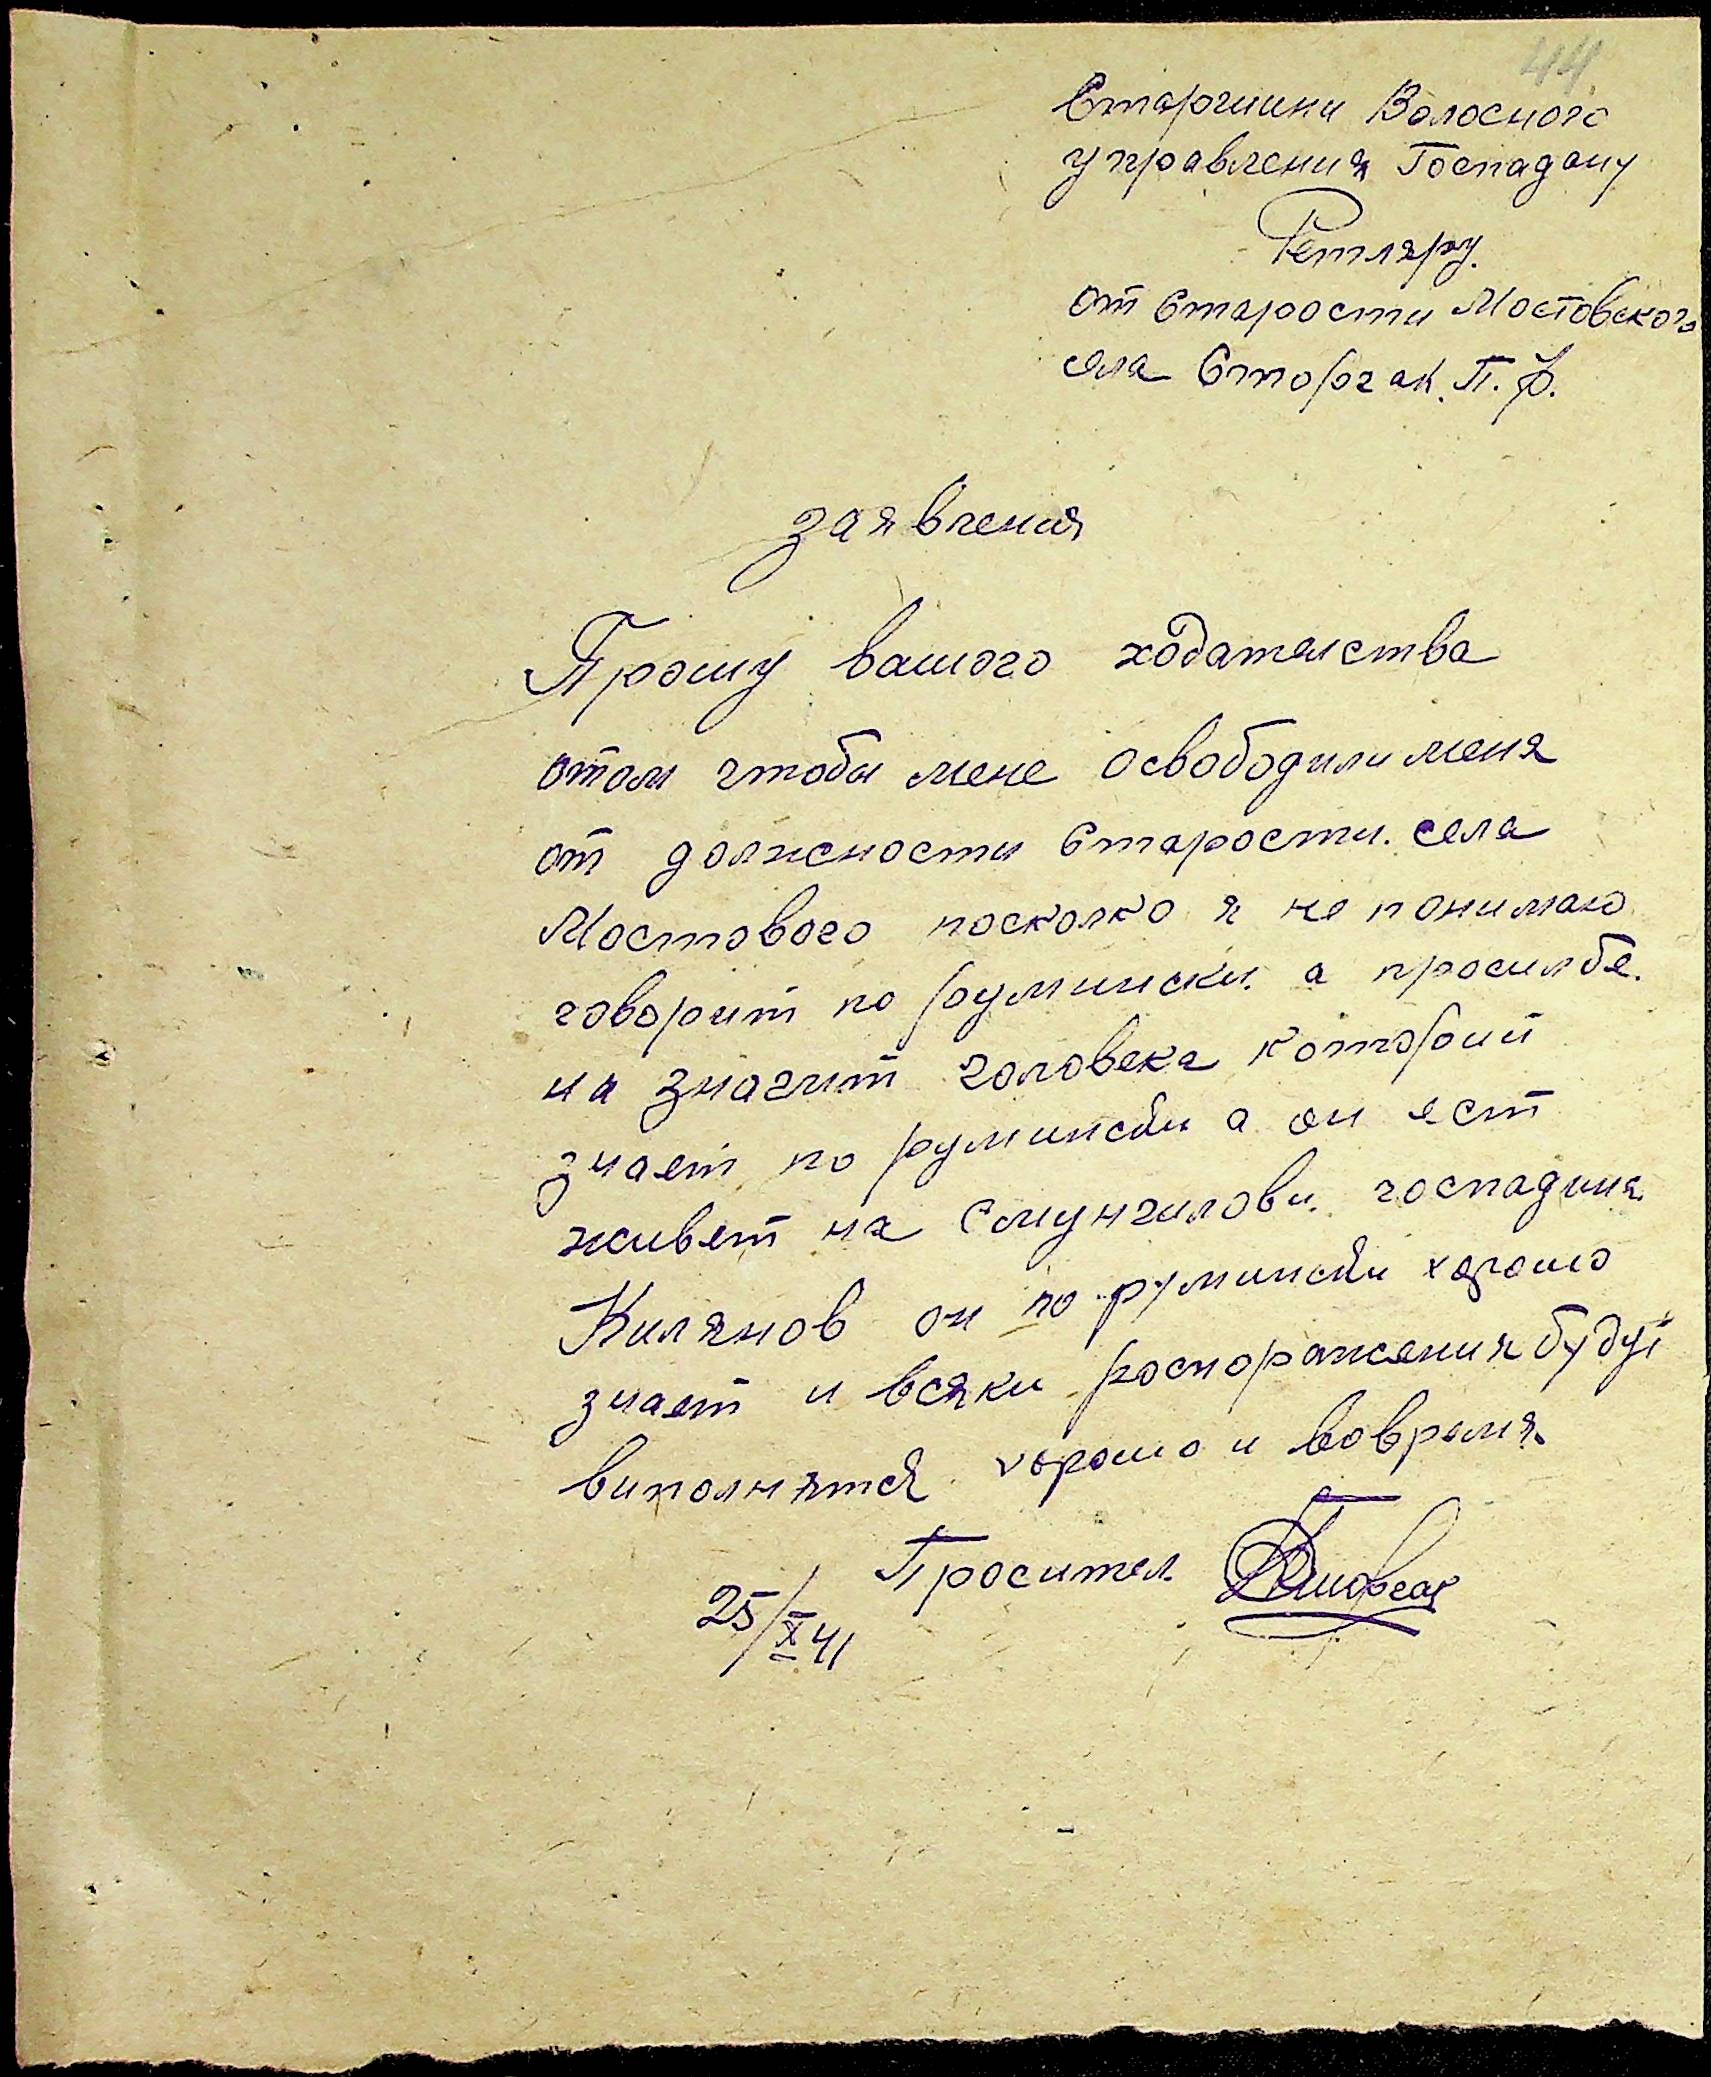 44
Старшини Волосного
управления Госпадану
Ретляру.
от Старости Мостовского
села Сторчак. П. Ф.
заявления
Прошу вашого ходателства
отом чтобы мене освободили меня
от должности Старости. села
Мостового посколко я не понимаю
говорит по румински. а просилбе.
на значит чоловека которий
знает по румински а он ест
живет на Смунчилови. госпадина
Килянов он по румински хорошо
знает и всяки роспоражения будут
виполнятся хорошо и вовремя.
Просител Сторчак
25/X 41